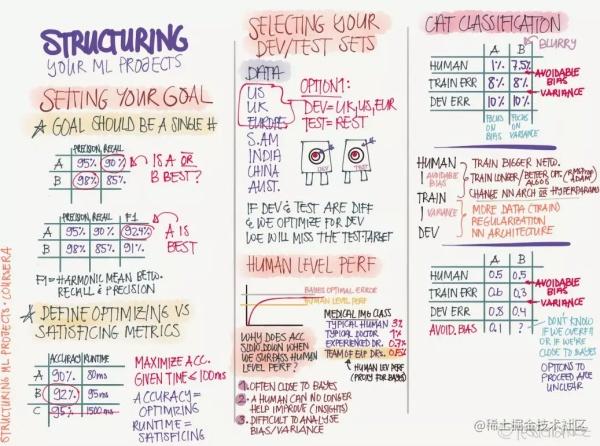 STRUCTURING
YOUR ML PROJECTS
SETTING YOUR GOAL
GOAL SHOULD BE A SINGLE #
PRECISION, RECALL
A 95% 90%
B 98% 85%
IS A OR
B BEST?
PRECISION, RECALL F1
A 95% 90% 92.4%
B 98% 85% 91%
A IS
BEST
F1 = HARMONIC MEAN BETW.
RECALL & PRECISION
DEFINE OPTIMIZING VS
SATISFICING METRICS
ACCURACY RUNTIME
A 90% 80ms
B 92% 95ms
C 95% 1500ms
MAXIMIZE ACC.
GIVEN TIME ≤ 100ms
ACCURACY =
OPTIMIZING
RUNTIME =
SATISFICING
STRUCTURING ML PROJECTS · COURSERA
SELECTING YOUR
DEV/TEST SETS
DATA
US
UK
EUROPE
S.AM
INDIA
CHINA
AUST.
OPTION 1:
DEV = UK, US, EUR
TEST = REST
DEV
TEST
IF DEV & TEST ARE DIFF
& WE OPTIMIZE FOR DEV
WE WILL MISS THE TEST-TARGET
HUMAN LEVEL PERF
BAYES OPTIMAL ERROR
HUMAN LEVEL PERF
WHY DOES ACC
SLOW DOWN WHEN
WE SURPASS HUMAN
LEVEL PERF?
MEDICAL IMG CLASS
TYPICAL HUMAN 3%
TYPICAL DOCTOR 1%
EXPERIENCED DR. 0.7%
TEAM OF EXP DRS. 0.5%
HUMAN LEVEL PERF
(PROXY FOR BAYES)
1. OFTEN CLOSE TO BAYES
2. A HUMAN CAN NO LONGER
HELP IMPROVE (INSIGHTS)
3. DIFFICULT TO ANALYSE
BIAS/VARIANCE
CAT CLASSIFICATION
BLURRY
A B
HUMAN 1% 7.5%
TRAIN ERR 8% 8%
DEV ERR 10% 10%
AVOIDABLE
BIAS
VARIANCE
FOCUS
ON
BIAS
FOCUS
ON
VARIANCE
HUMAN
AVOIDABLE
BIAS
TRAIN
VARIANCE
DEV
TRAIN BIGGER NETW.
TRAIN LONGER/BETTER OPT. ALGOS (RMSPROP ADAM)
CHANGE NN ARCH OR HYPERPARAMS
MORE DATA (TRAIN)
REGULARIZATION
NN ARCHITECTURE
A B
HUMAN 0.5 0.5
TRAIN ERR 0.6 0.3
DEV ERR 0.8 0.4
AVOID. BIAS 0.1 ?
AVOIDABLE
BIAS
VARIANCE
DON'T KNOW
IF WE OVERFIT
OR IF WE'RE
CLOSE TO BAYES
OPTIONS TO
PROCEED ARE
UNCLEAR
@稀土掘金技术社区